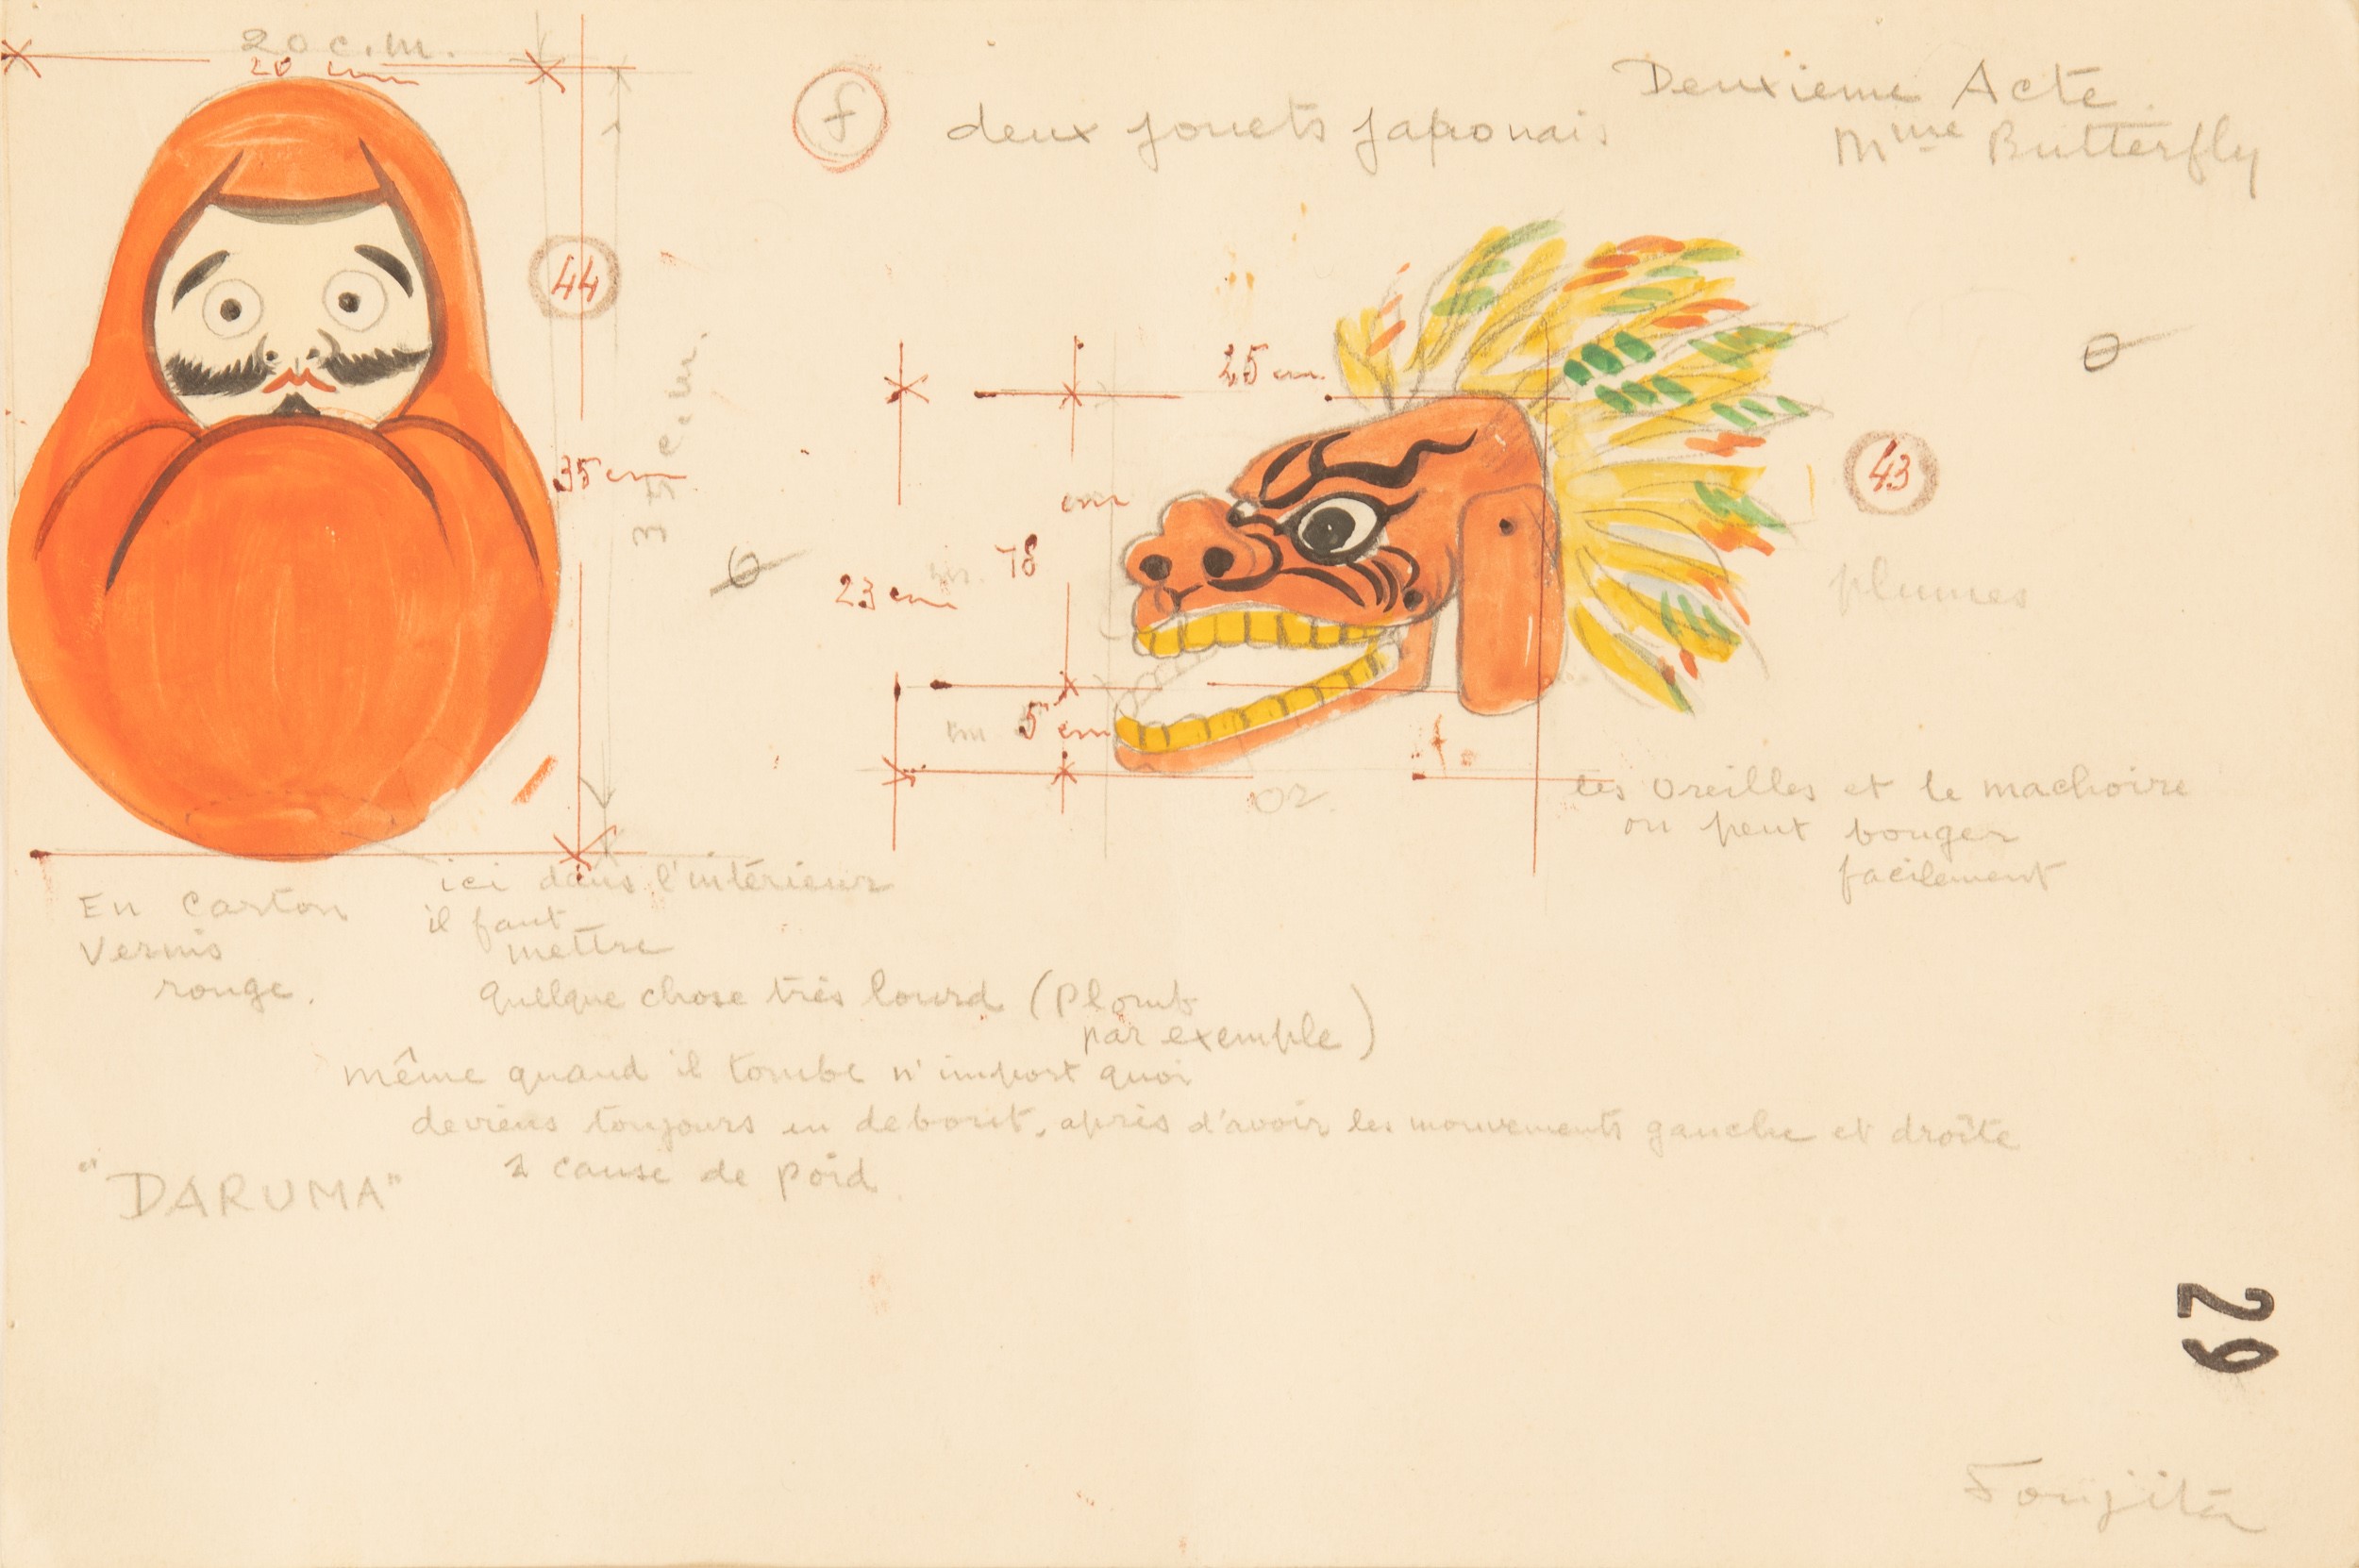 20 c.m.
20 cm
f
deux jouets japonais
Deuxieme Acte.
Mme Butterfly
44
35 cm
35 c.m.
25 cm
cm
18
23 cm
5 cm
cm
43
plumes
or
les oreilles et le machoire
on peut bouger
facilement
En carton
vernis
rouge.
ici dans l'intérieur
il faut
mettre
quelque chose très lourd (plomb
par exemple)
même quand il tombe n'import quoi
deviens toujours en debout, après d'avoir les mouvements gauche et droite
à cause de poid
"DARUMA"
29
Foujita